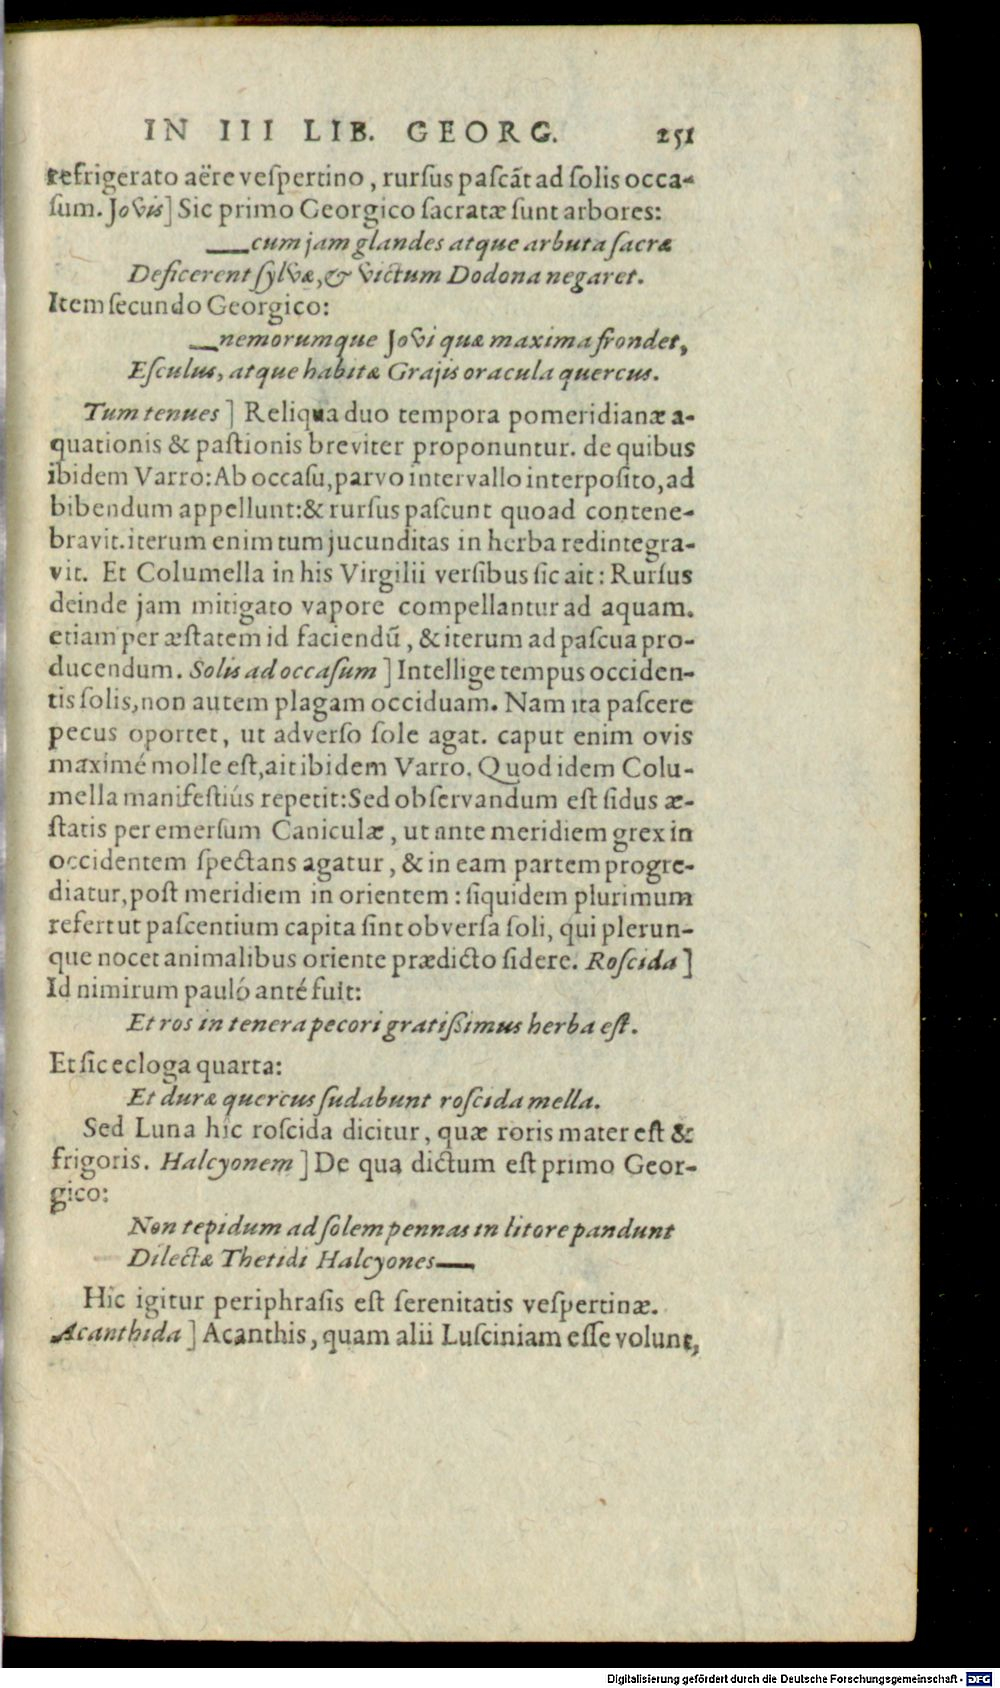 IN III LIB. GEORG. 251
refrigerato aëre veſpertino, rurſus paſcãt ad ſolis occa-
ſum. Jovis] Sic primo Georgico ſacratæ ſunt arbores:
—cum jam glandes atque arbuta ſacræ
Deficerent ſylvæ, & victum Dodona negaret.
Item ſecundo Georgico:
—nemorumque Jovi quæ maxima frondet,
Eſculus, atque habitæ Grajis oracula quercus.
Tum tenues] Reliqua duo tempora pomeridianæ a-
quationis & paſtionis breviter proponuntur. de quibus
ibidem Varro: Ab occaſu, parvo intervallo interpoſito, ad
bibendum appellunt: & rurſus paſcunt quoad contene-
bravit. iterum enim tum jucunditas in herba redintegra-
vit. Et Columella in his Virgilii verſibus ſic ait: Rurſus
deinde jam mitigato vapore compellantur ad aquam.
etiam per æſtatem id faciendũ, & iterum ad paſcua pro-
ducendum. Solis ad occaſum] Intellige tempus occiden-
tis ſolis, non autem plagam occiduam. Nam ita paſcere
pecus oportet, ut adverſo ſole agat. caput enim ovis
maximé molle eſt, ait ibidem Varro. Quod idem Colu-
mella manifeſtiús repetit: Sed obſervandum eſt ſidus æ-
ſtatis per emerſum Caniculæ, ut ante meridiem grex in
occidentem ſpectans agatur, & in eam partem progre-
diatur, poſt meridiem in orientem: ſiquidem plurimum
refert ut paſcentium capita ſint obverſa ſoli, qui plerun-
que nocet animalibus oriente prædicto ſidere. Roſcida]
Id nimirum pauló anté fuit:
Et ros in tenera pecori gratiſſimus herba eſt.
Et ſic ecloga quarta:
Et duræ quercus ſudabunt roſcida mella.
Sed Luna hîc roſcida dicitur, quæ roris mater eſt &
frigoris. Halcyonem] De qua dictum eſt primo Geor-
gico:
Non tepidum ad ſolem pennas in litore pandunt
Dilectæ Thetidi Halcyones—
Hîc igitur periphraſis eſt ſerenitatis veſpertinæ.
Acanthida] Acanthis, quam alii Luſciniam eſſe volunt,
Digitalisierung gefördert durch die Deutsche Forschungsgemeinschaft - DFG